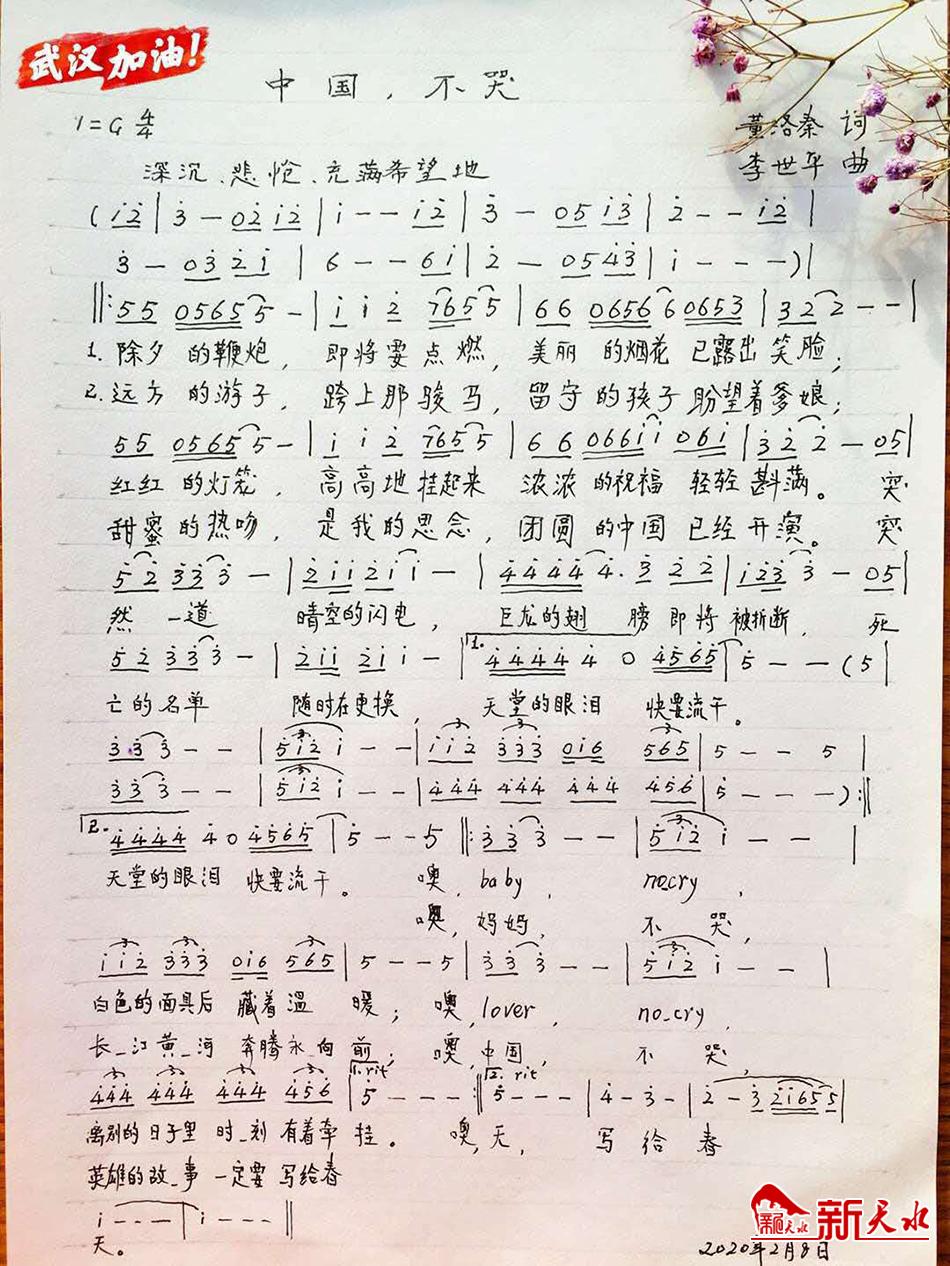 武汉加油!
中国，不哭
1=G 4/4
董洛秦 词
深沉、悲怆、充满希望地
李世华 曲
(i̇2̇|3̇ — 02̇ i̇2̇|i̇ - - i̇2̇|3̇ — 05 i̇3̇|2̇ - - i̇2̇|
3̇ — 03̇ 2̇ i̇|6 - - 6i̇|2̇ — 05 4̇3̇|i̇ - - -)|
‖:55 0565 5 —|i̇ i̇ 2̇ 765 5|66 0656 6 0653|32 2 - -|
1. 除夕 的鞭炮， 即将要点燃， 美丽 的烟花 已露出笑脸；
2. 远方 的游子， 跨上那骏马， 留守的孩子 盼望着爹娘；
55 0565 5 —|i̇ i̇ 2̇ 765 5|66 066i̇ i̇ 06i̇|3̇2̇ 2̇ — 05|
红红 的灯笼， 高高地挂起来 浓浓的祝福 轻轻斟满。 突
甜蜜的热吻， 是我的思念， 团圆的中国 已经开演。 突
5̇ 2̇ 3̇3̇ 3̇ —|2̇i̇i̇ 2̇i̇ i̇ —|4̇4̇4̇4̇ 4̇. 3̇ 2̇ 2̇|i̇2̇3̇ 3̇ — 05|
然 一道 晴空的闪电， 巨龙的翅 膀即将被折断， 死
5̇ 2̇ 3̇3̇ 3̇ —|2̇i̇i̇ 2̇i̇ i̇ —|1. 4̇4̇4̇4̇ 4̇ 0 4̇5̇6̇5̇|5̇ - - (5|
亡的名单 随时在更换， 天堂的眼泪 快要流干。
3̇3̇ 3̇ - -|5i̇2̇ i̇ - -|i̇i̇2̇ 3̇3̇3̇ 0i̇6 565|5 - - 5|
3̇3̇ 3̇ - -|5i̇2̇ i̇ - -|4̇4̇4̇ 4̇4̇4̇ 4̇4̇4̇ 4̇56̇|5̇ - - -):‖
2. 4̇4̇4̇4̇ 4̇0 4̇5̇6̇5̇|5̇ - - 5‖:3̇3̇ 3̇ - -|5i̇2̇ i̇ - -|
天堂的眼泪 快要流干。 噢，baby， no_cry，
噢，妈妈， 不 哭，
i̇i̇2̇ 3̇3̇3̇ 0i̇6 565|5 - - 5|3̇3̇ 3̇ - -|5i̇2̇ i̇ - -|
白色的面具后 藏着温 暖； 噢，lover， no_cry，
长_江黄_河 奔腾永_向 前； 噢，中国， 不 哭，
1. rit 2. rit
4̇4̇4̇ 4̇4̇4̇ 4̇4̇4̇ 4̇56|5̇ - - -:‖5̇ - - -|4̇ - 3̇ -|2̇ - 3̇ 2̇i̇65 5|
离别的日子里 时_刻 有着牵 挂。 噢，天， 写 给 春
英雄的故_事 一定要 写给春
i̇ - - -|i̇ - - -‖
天。
2020年2月8日
新天水